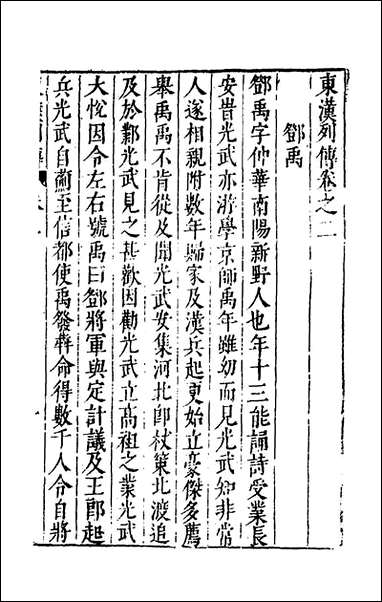 東漢列傳卷之二
鄧禹
鄧禹字仲華南陽新野人也年十三能誦詩受業長
安旹光武亦游學京師禹年雖幼而見光武知非常
人遂相親附數年歸家及漢兵起更始立豪傑多薦
舉禹禹不肯從及聞光武安集河北卽杖策北渡追
及於鄴光武見之甚歡因勸光武立高祖之業光武
大悅因令左右號禹曰鄧將軍與定計議及王郎起
兵光武自薊至信都使禹發犇命得數千人令自將